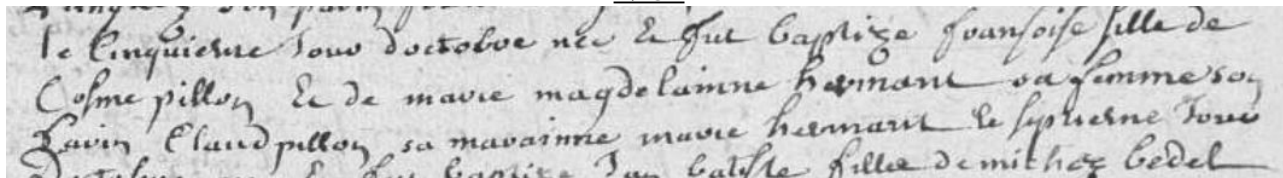 le cinquieme Jour doctobre nee et fut baptize fransoise fille de
Cosme pillon et de marie magdelainne hermant sa femme son
parin Claud pillon sa marainne marie hermant le siptieme Jour
fut baptize Jan batiste fille de michez bedel